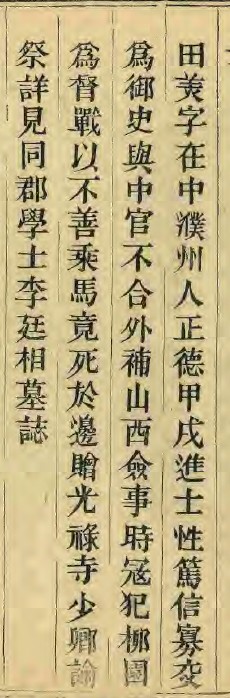 田荚字在中濮州人正德甲戌進士性篤信寡交
為御史與中官不合外補山西僉事時寇犯柳園
為督戰以不善乘馬竟死於邊贈光祿寺少卿諭
祭詳見同郡學士李廷相墓誌